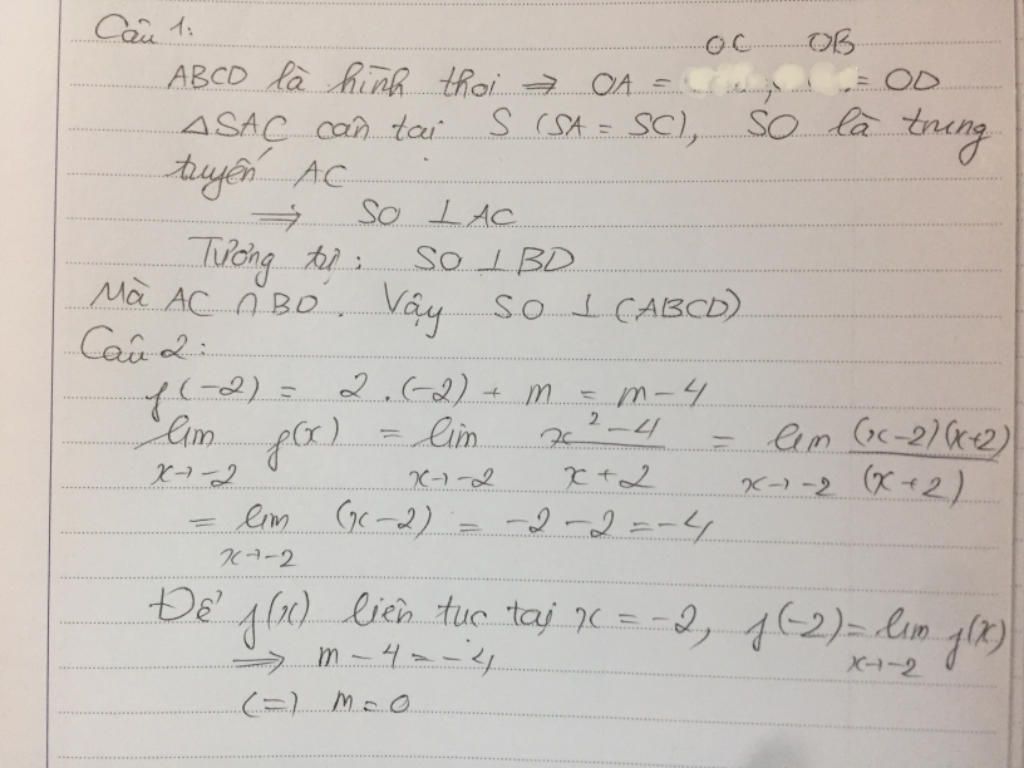 Câu 1:
OC OB
ABCD là hình thoi => OA = , = OD
△SAC cân tại S (SA = SC), SO là trung
tuyến AC
=> SO ⊥ AC
Tương tự: SO ⊥ BD
Mà AC ∩ BD. Vậy SO ⊥ (ABCD)
Câu 2:
f(-2) = 2.(-2) + m = m - 4
lim f(x) = lim x² - 4 / x + 2 = lim (x-2)(x+2) / (x+2)
x→-2 x→-2 x→-2
= lim (x-2) = -2 - 2 = -4
x→-2
Để f(x) liên tục tại x = -2, f(-2) = lim f(x)
x→-2
=> m - 4 = -4
(=) m = 0